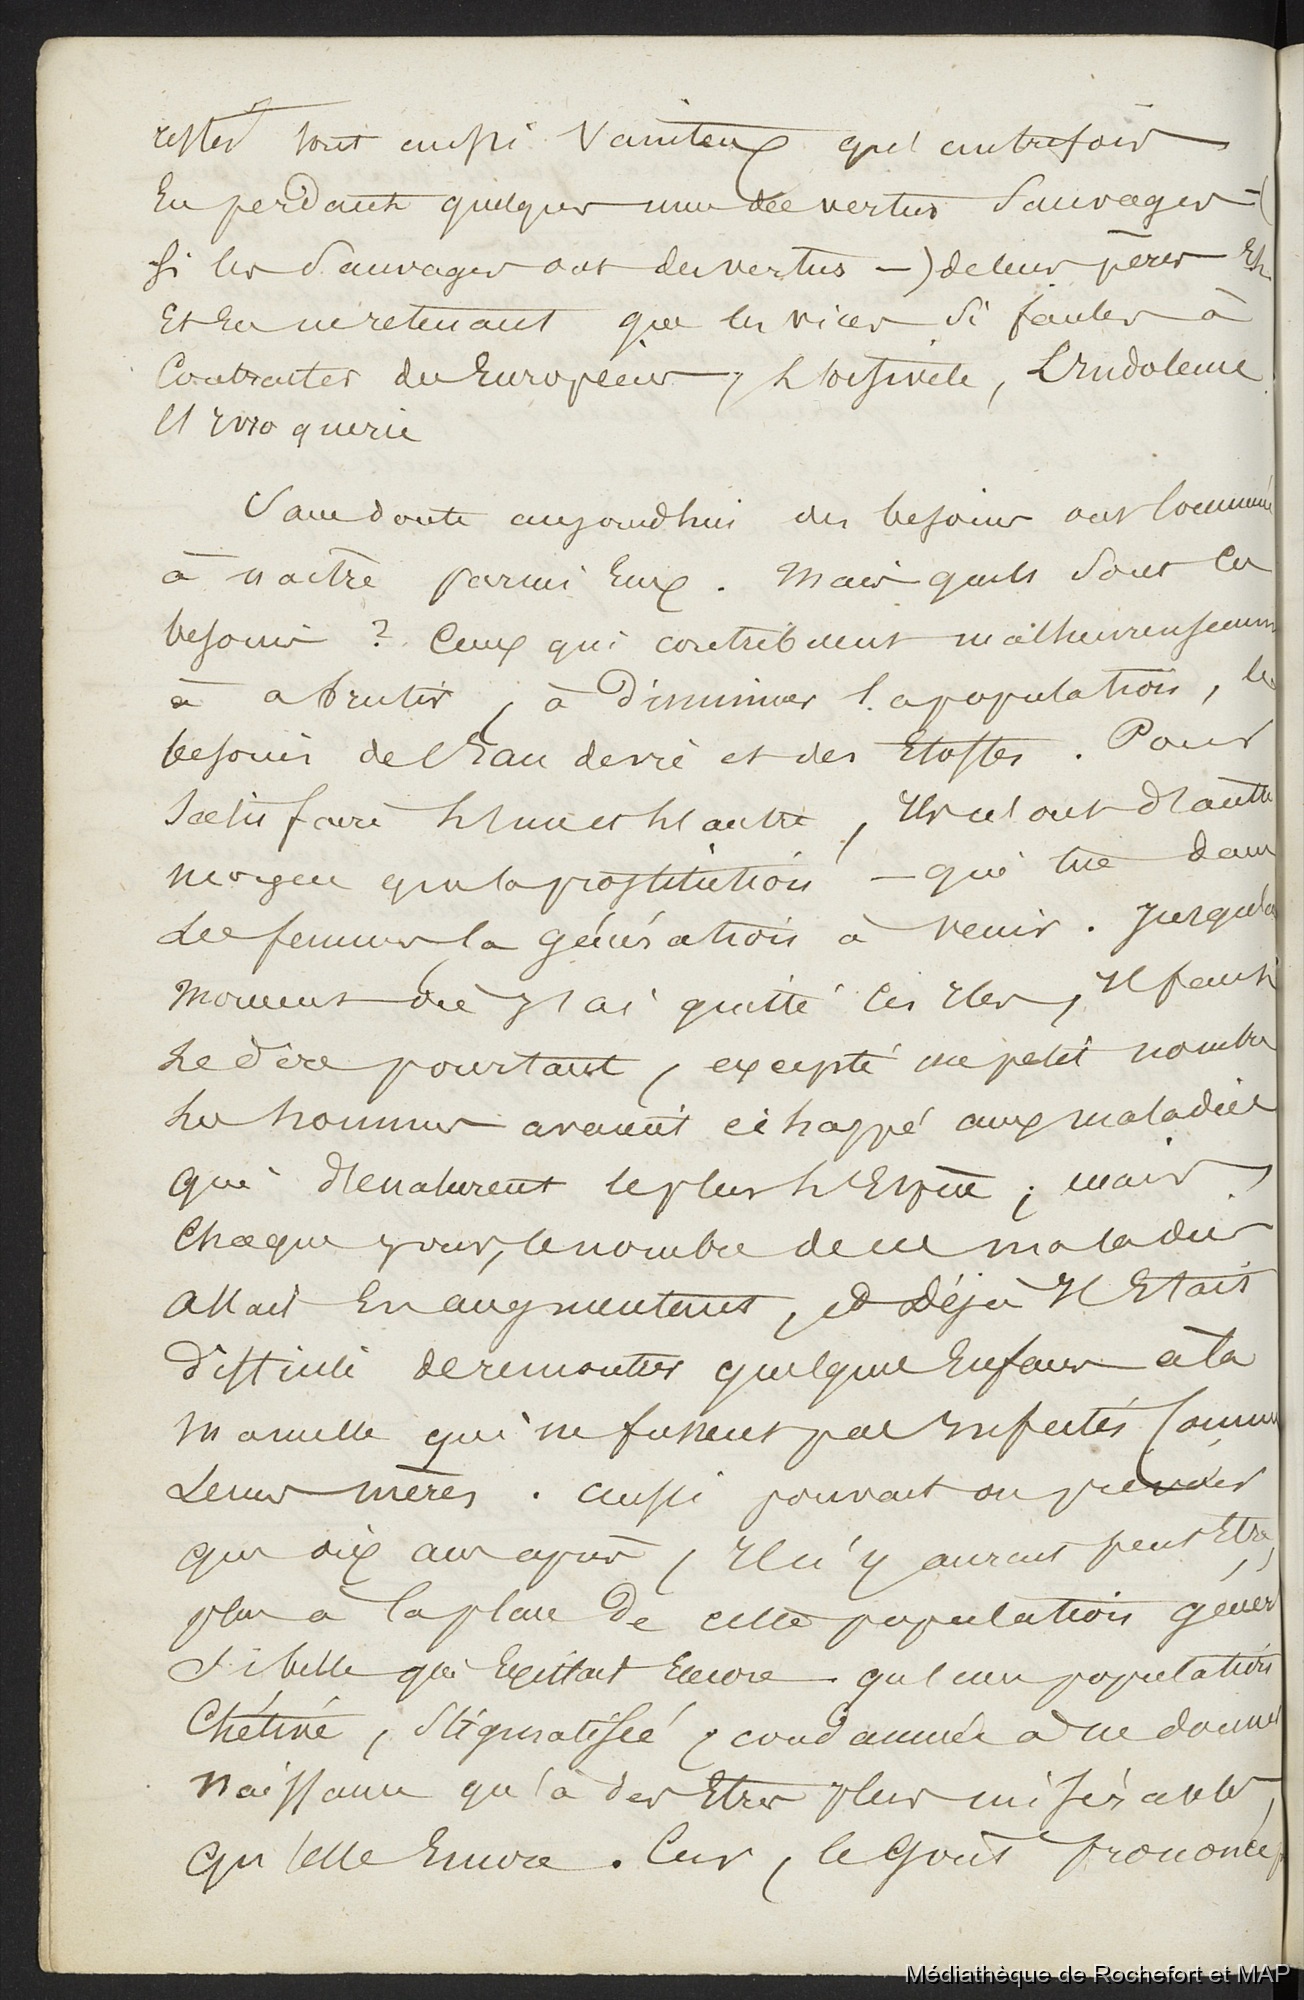 rester tout aussi Vaniteux qu'autrefois
En perdant quelques unes des vertus Sauvages (
si les Sauvages ont des vertus —) de leurs pères Et
Et En ne retenant que les vices si faciles à
Contracter des Européens, L'oisiveté, L'Indolence
Et Ivroquerie
Sans doute aujourdhui des besoins ont Commencé
à naître parmi Eux. Mais quels sont les
besoins ? Ceux qui contribuent malheureusement
à abrutir, à diminuer la population, les
besoins de l'Eau de vie et des Etoffes. Pour
Satisfaire L'une et L'autre, Ils n'ont d'autre
moyen que la prostitution — qui tue dans
Les femmes la génération à venir. Jusqu'au
moment où J'ai quitté les Iles, Il faut
Le dire pourtant, excepté un petit nombre
Les hommes avaient échappé aux maladies
qui dénaturent le plus L'Espèce ; mais
Chaque jour, le nombre de ces maladies
allait En augmentant, et Déjà Il Etait
difficile de rencontrer quelques Enfans à la
mamelle qui ne fussent pas Infectés Comme
Leurs mères. aussi pouvait on prévoir
que dix ans après, Il n'y aurait peut Etre
plus à la place de cette population génér
Si belle qui Existait Encore qu'une population
Chétive, Stigmatisée, condamnée à ne donner
naissance qu'à des Etres plus misérables
qu'elle Encore. Car, le Goût prononcé
Médiathèque de Rochefort et MAP